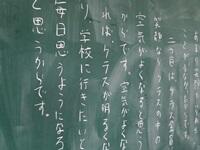 二つ目は、クラス全員
笑顔ならクラスの中の
空気がよくなると思う
からです。空気がよくな
ればクラスが明るくな
り、学校に行きたいと
毎日思うようになる
と思うからです。